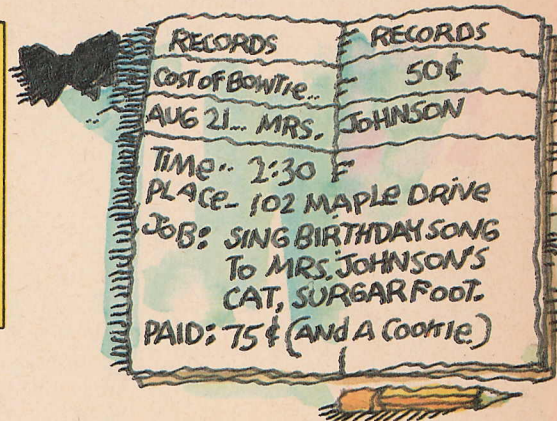 RECORDS RECORDS
COST OF BOWTIE... 50¢
AUG 21... MRS. JOHNSON
TIME.. 2:30
PLACE- 102 MAPLE DRIVE
JOB: SING BIRTHDAY SONG
TO MRS. JOHNSON'S
CAT, SURGARFOOT.
PAID: 75¢ (AND A COOKIE)